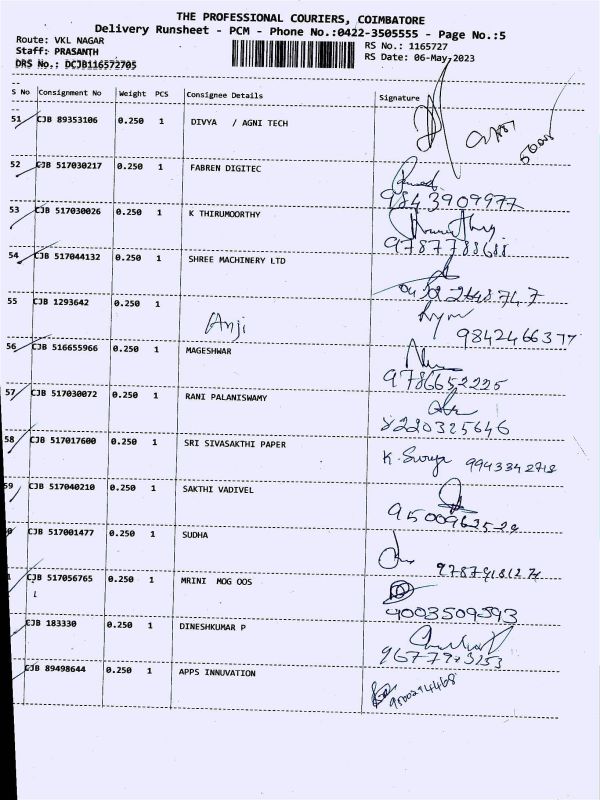 THE PROFESSIONAL COURIERS, COIMBATORE
Delivery Runsheet - PCM - Phone No.:0422-3505555 - Page No.:5
Route: VKL NAGAR
RS No.: 1165727
Staff: PRASANTH
RS Date: 06-May-2023
DRS No.: DCJB116572705
S No Consignment No Weight PCS Consignee Details Signature
51 CJB 89353106 0.250 1 DIVYA / AGNI TECH
52 CJB 517030217 0.250 1 FABREN DIGITEC
9843909977
53 CJB 517030026 0.250 1 K THIRUMOORTHY
9787788688
54 CJB 517044132 0.250 1 SHREE MACHINERY LTD
55 CJB 1293642 0.250 1
Anji
9842466377
56 CJB 516655966 0.250 1 MAGESHWAR
9786652225
57 CJB 517030072 0.250 1 RANI PALANISWAMY
8220325646
58 CJB 517017600 0.250 1 SRI SIVASAKTHI PAPER
K. Surya 9943342718
59 CJB 517040210 0.250 1 SAKTHI VADIVEL
CJB 517001477 0.250 1 SUDHA
CJB 517056765 0.250 1 MRINI MOG OOS
9003509593
CJB 183330 0.250 1 DINESHKUMAR P
CJB 89498644 0.250 1 APPS INNUVATION